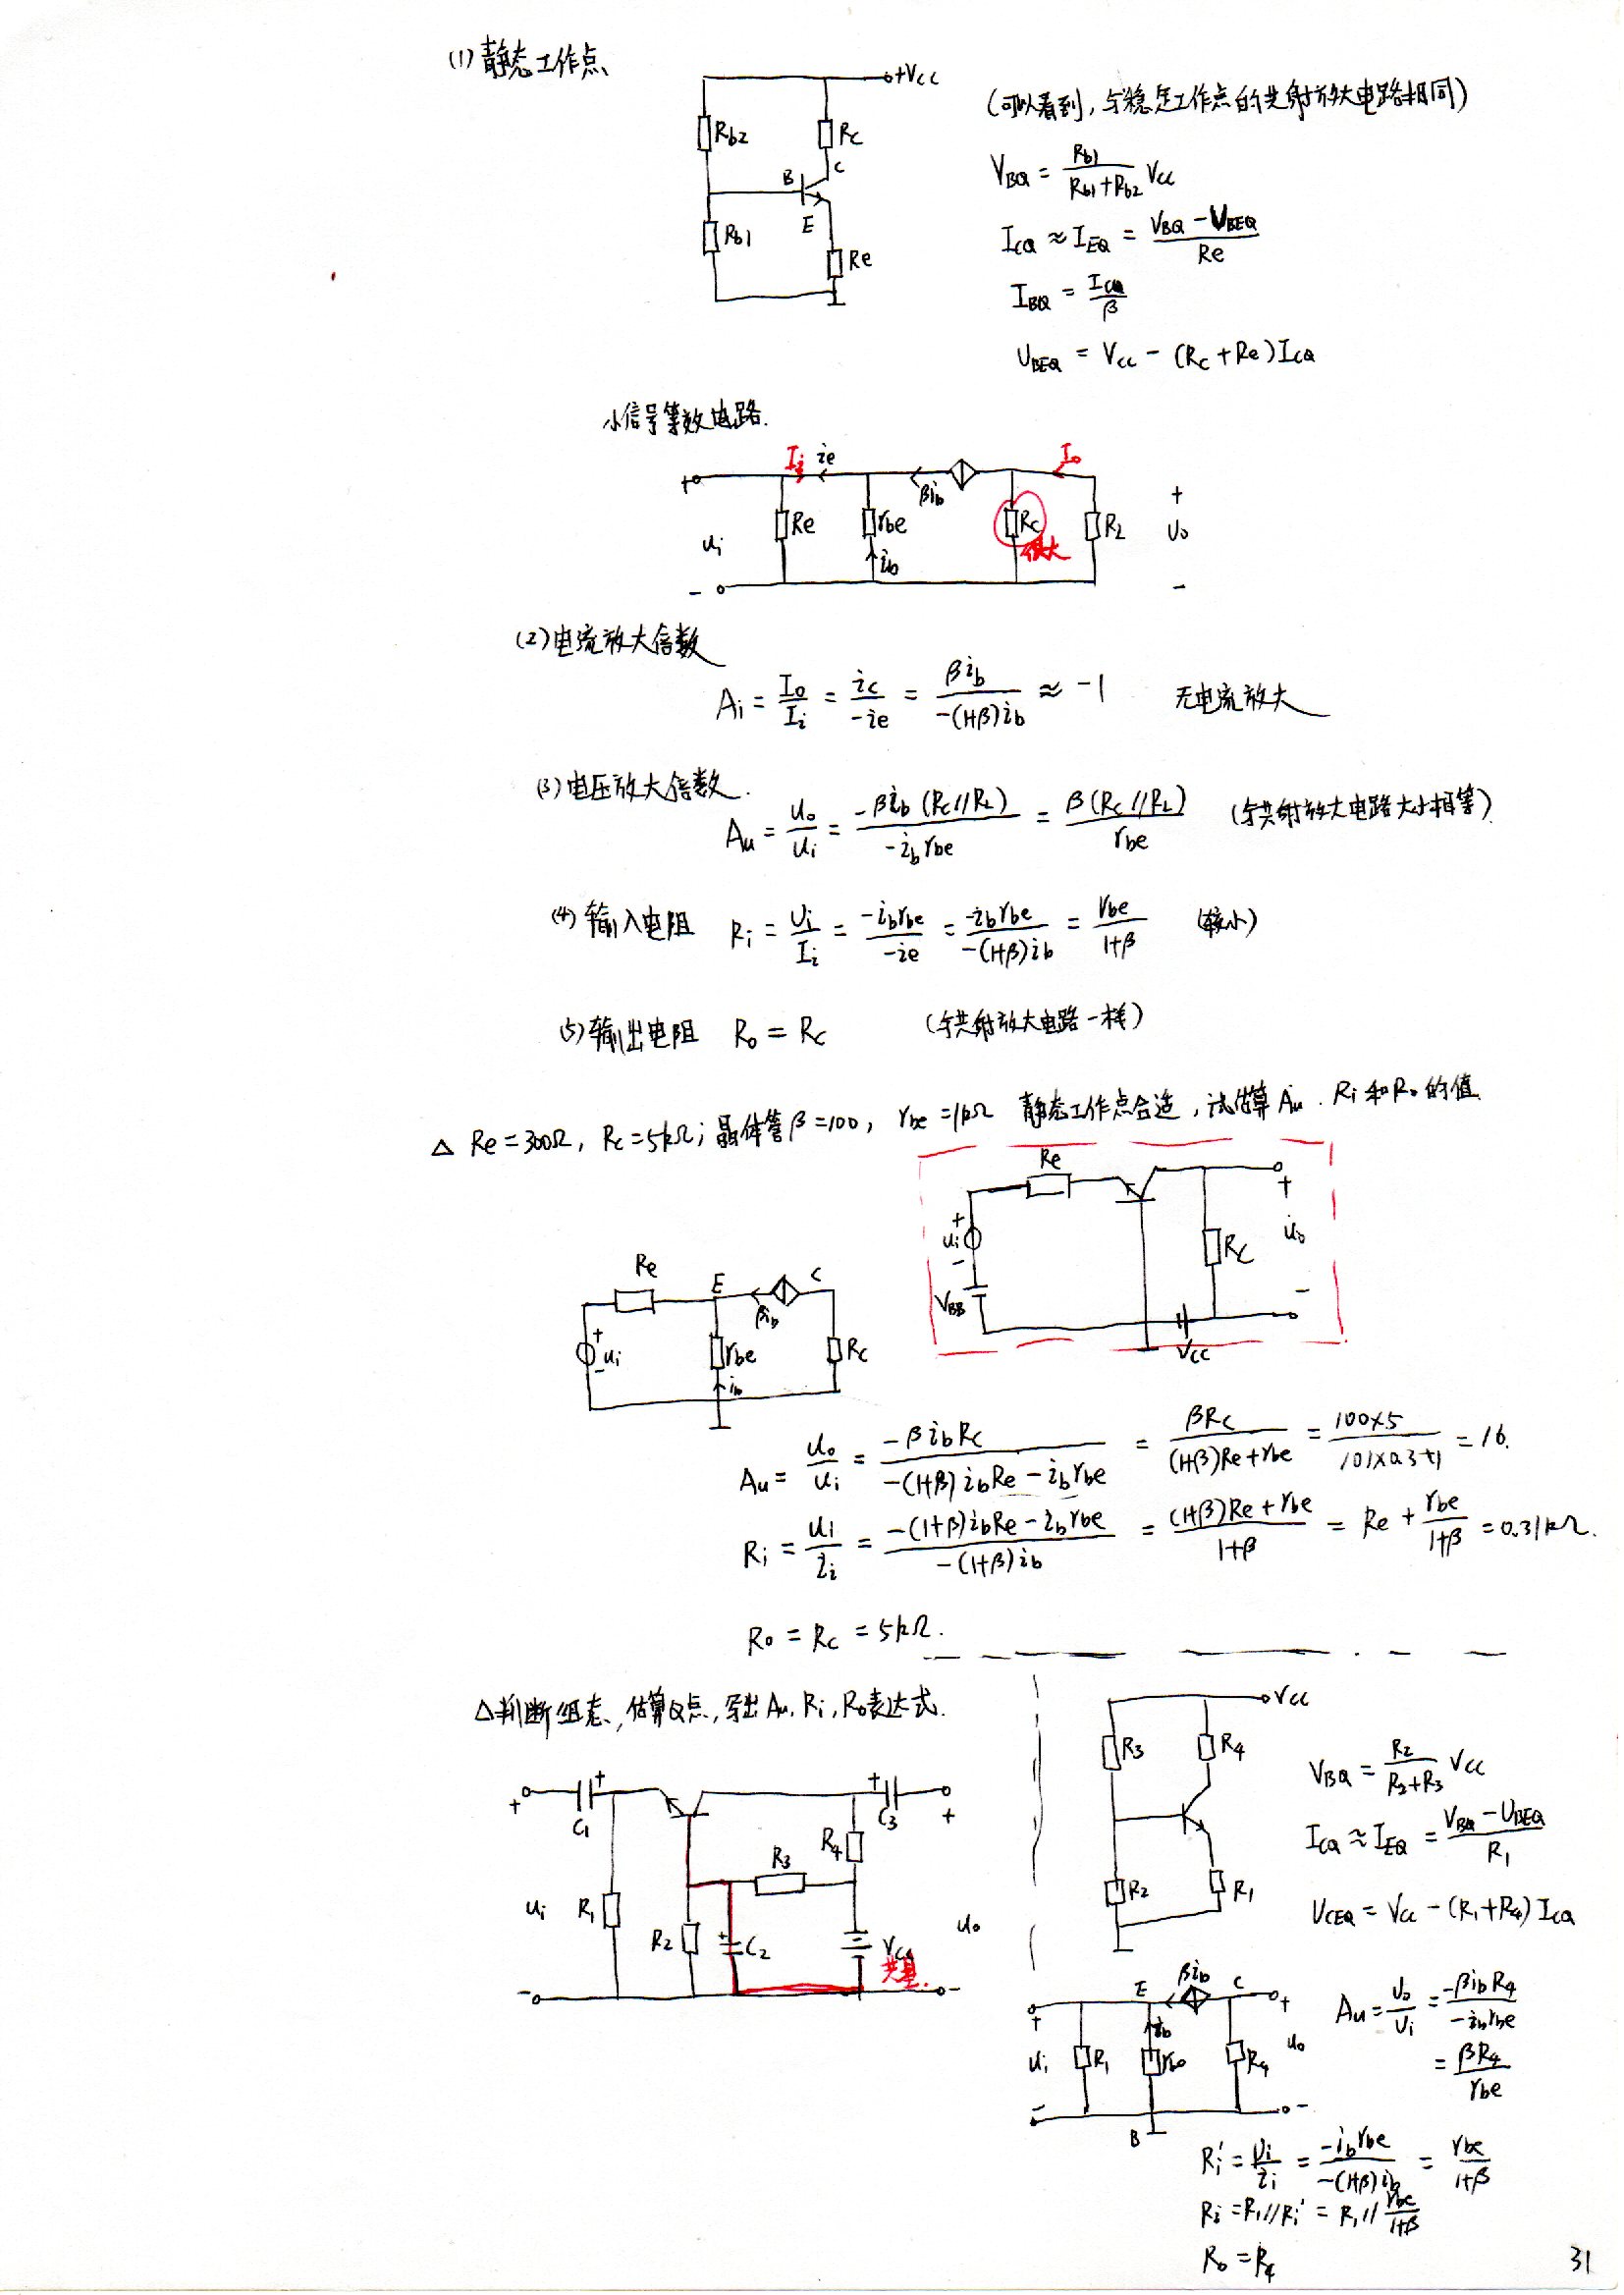 (1) 静态工作点
+Vcc
Rb2
Rc
B
C
E
Rb1
Re
(可以看到,与稳定工作点的共射放大电路相同)
V_BQ = Rb1/(Rb1+Rb2) Vcc
I_CQ ≈ I_EQ = (V_BQ - U_BEQ)/Re
I_BQ = I_CQ/β
U_BEQ = Vcc - (Rc+Re)I_CQ
小信号等效电路.
Ii ie βib Io
+ ui -
Re rbe ib Rc 很大 RL
+ Uo -
(2) 电流放大倍数
Ai = Io/Ii = ic/-ie = βib/-(1+β)ib ≈ -1 无电流放大
(3) 电压放大倍数.
Au = uo/ui = -βib(Rc//RL)/-ib rbe = β(Rc//RL)/rbe (与共射放大电路大小相等)
(4) 输入电阻 Ri = Ui/Ii = -ib rbe/-ie = -ib rbe/-(1+β)ib = rbe/(1+β) (较小)
(5) 输出电阻 Ro = Rc (与共射放大电路一样)
△ Re=300Ω, Rc=5kΩ; 晶体管β=100, rbe=1kΩ 静态工作点合适,试估算Au、Ri和Ro的值.
Re
+ ui - VBB
Rc
+ uo -
Vcc
Re E βib C
+ ui - rbe ib Rc
Au = uo/ui = -βibRc/(-(1+β)ibRe - ib rbe) = βRc/((1+β)Re+rbe) = 100×5/(101×0.3+1) = 16.
Ri = ui/ii = (-(1+β)ibRe - ib rbe)/-(1+β)ib = ((1+β)Re+rbe)/(1+β) = Re + rbe/(1+β) = 0.31kΩ.
Ro = Rc = 5kΩ.
△判断组态,估算Q点,写出Au, Ri, Ro表达式.
+ C1 + + C3 +
R4
R3
ui R1 R2 + C2 Vcc uo
共基.
- -
Vcc
R3 R4
R2 R1
V_BQ = R2/(R2+R3) Vcc
I_CQ ≈ I_EQ = (V_BQ - U_BEQ)/R1
U_CEQ = Vcc - (R1+R4)I_CQ
E βib C
+ ui - R1 ib rbe R4 + uo -
B
Au = Uo/Ui = -βibR4/-ib rbe
= βR4/rbe
Ri' = Ui/ii = -ib rbe/-(1+β)ib = rbe/(1+β)
Ri = R1//Ri' = R1//rbe/(1+β)
Ro = R4
31